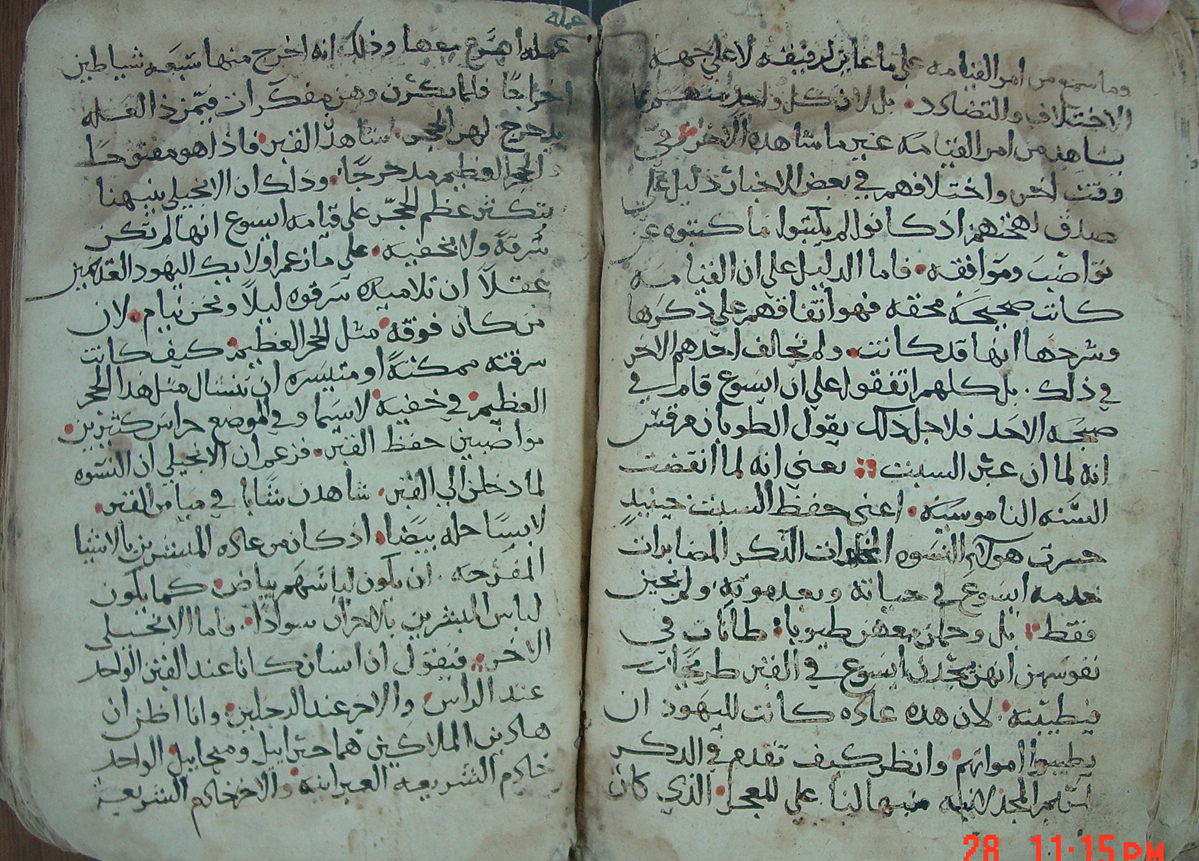 وما سمع من امر القيامه على ما عاين رفيقه لا على جهة
الاختلاف والتضادد بل لان كل واحد منهم
شاهد من امر القيامه غير ما شاهده الاخر في
وقت اخر واختلافهم في بعض الاخبار دليل على
صدق لهجتهم اذ كانوا لم يكتبوا ما كتبوه عن
تواضب وموافقه فاما الدليل على ان القيامه
كانت صحيحة محققه فهو اتفاقهم على ذكرها
وشرحها انها قد كانت ولم يخالف احدهم الاخر
في ذلك بل كلهم اتفقوا على ان ايسوع قام في
صبحة الاحد فلاجل ذلك يقول الطوبان مرقس
انه لما ان عبر السبت يعني انه لما انقضت
السنه الناموسيه اعني حفظ السبت حينيد
حسرت هولاي النسوه الخالدات الذكر المصابرات
خدمة ايسوع في حياته وبعد موته ولم يجين
فقط بل وحملن معهن طيوبا ظانات في
نفوسهن انهن يجدن ايسوع في القبر طريحا
فيطيبنه لان هذه عاده كانت لليهود ان
يطيبوا امواتهم وانظر كيف تقدم في الذكر
اسم المجدلانيه منبها لنا على المعجل الذي كان
عمله
عمله ايسوع معها وذلك انه اخرج منها سبعة شياطين
اخراجا فلما بكرن وهن مفكرات فيمن ذا الذي له
يدحرج لهن الحجر شاهدن القبر فاذا هو مفتوحا
والحجر العظيم مدحرجا وذلك ان الانجيلي ينبهنا
بتكثير عظم الحجر على قيامة ايسوع انها لم تكن
سرقة ولا بخفيه على ما زعم اوليك اليهود العديمين
عقلا ان تلاميذه سرقوه ليلا ونحن نيام لان
من كان فوقه مثل الحجر العظيم كيف كانت
سرقته ممكنة او متيسره ان تنشال مثل هذا الحجر
العظيم في خفية لا سيما وفي الموضع حراس كثيرين
مواضبين حفظ القبر فزعم ان الانجيلي ان النسوه
لما دخلن الي القبر شاهدن شابا في ميامن القبر
لابسا حله بيضا اذ كان من عادة المبشرين بالاشيا
المفرحه ان يكون لباسهم بياض كما يكون
لباس المبشرين بالاحزان سوادا فاما الانجيلي
الاخر فيقول ان اثنان كانا عند القبر الواحد
عند الراس والاخر عند الرجلين وانا اظن ان
هادين الملاكين هما جبراييل وميخاييل الواحد
خادم الشريعه العبرانيه والاخر خادم الشريعة
28 11:15 PM